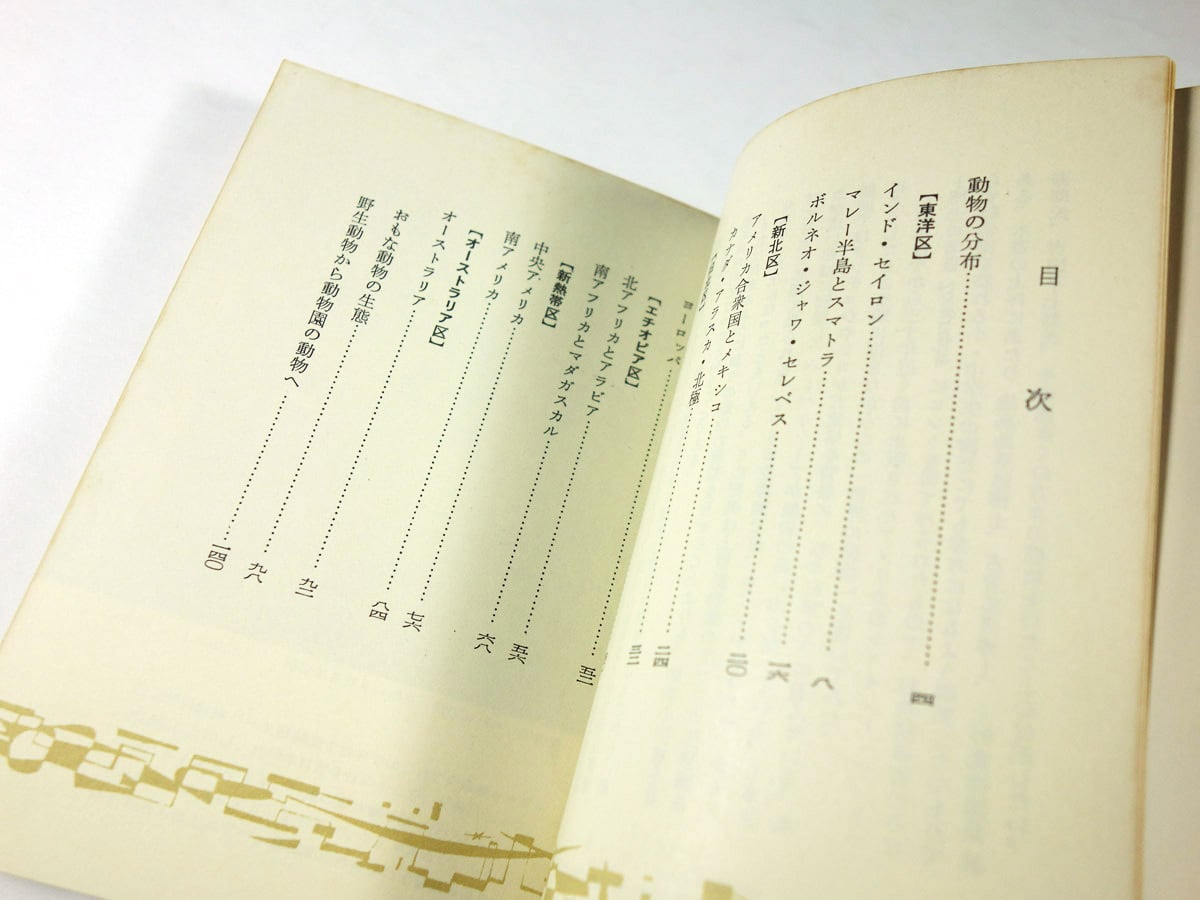 目次
動物の分布……四
【東洋区】
インド・セイロン……八
マレー半島とスマトラ……一六
ボルネオ・ジャワ・セレベス……二〇
【新北区】
アメリカ合衆国とメキシコ……二四
カナダ・アラスカ・北極……三二
ヨーロッパ……五二
【エチオピア区】
北アフリカとアラビア……五六
南アフリカとマダガスカル……六八
【新熱帯区】
中央アメリカ……七六
南アメリカ……八四
【オーストラリア区】
オーストラリア……九二
おもな動物の生態……九八
野生動物から動物園の動物へ……一四〇